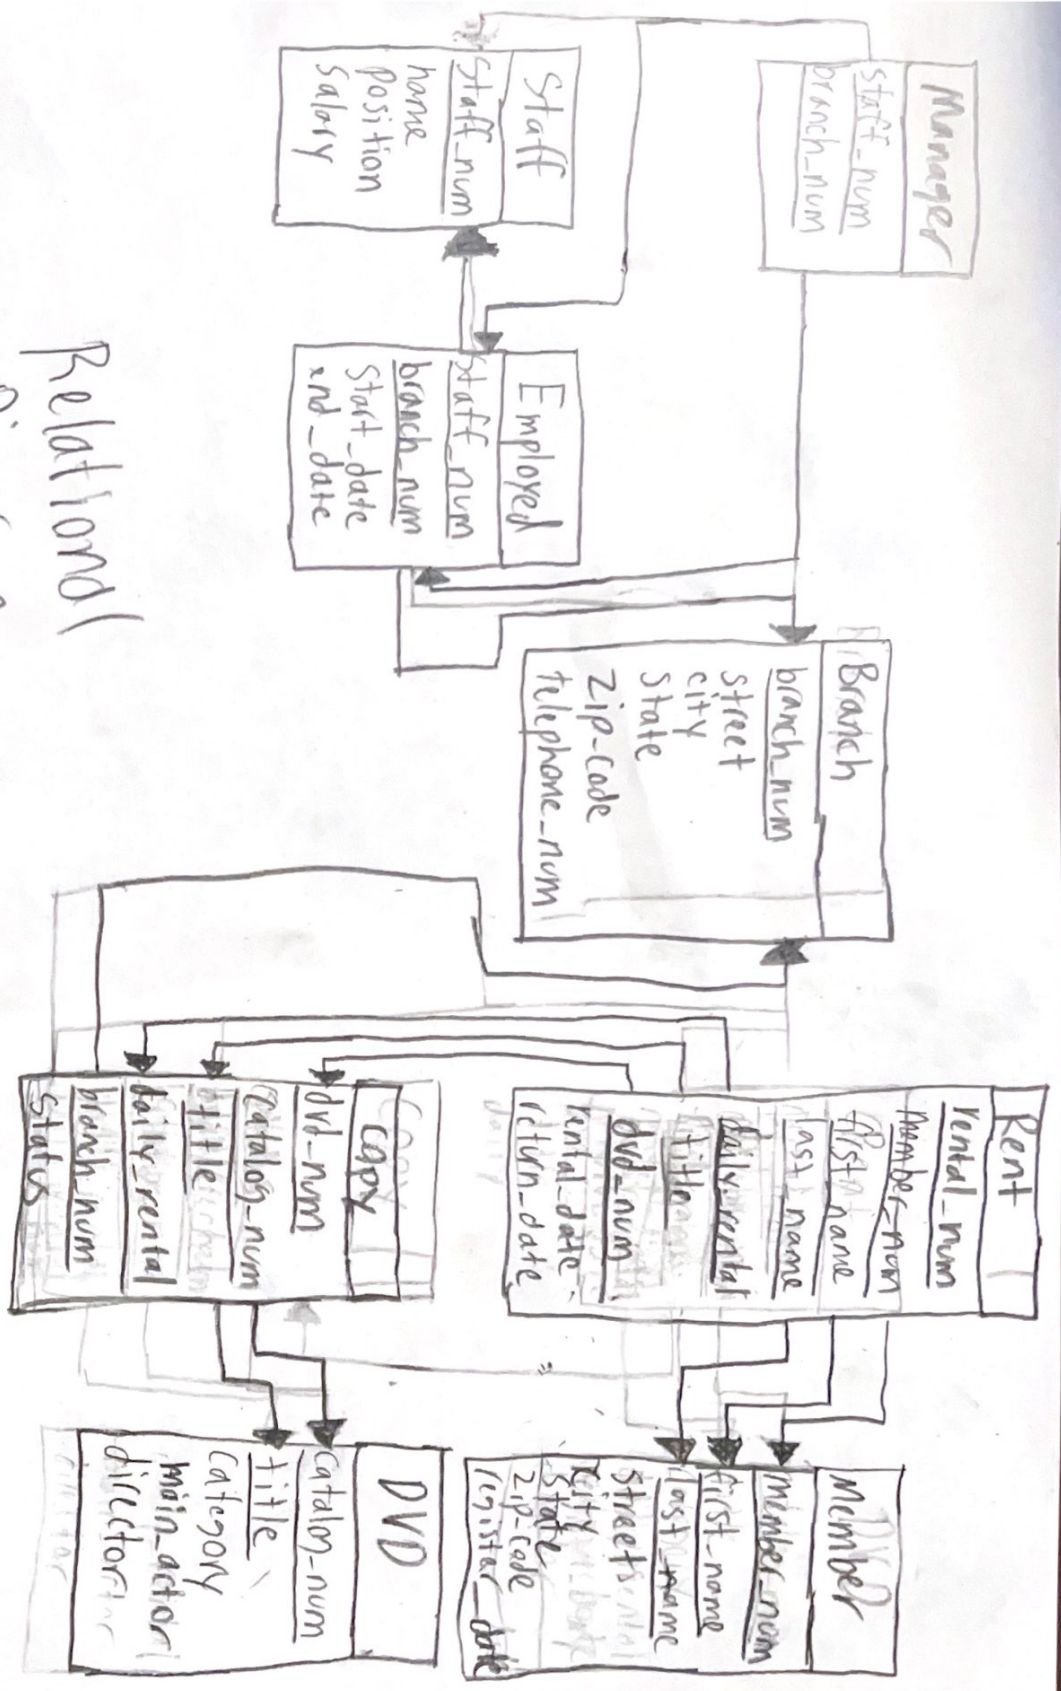 Manager
staff_num
branch_num
Staff
Staff_num
name
position
Salary
Employed
Staff_num
branch_num
Start_date
end_date
Branch
branch_num
street
city
State
Zip-code
telephone_num
Rent
rental_num
member_num
first_name
last_name
daily_rental
title
dvd_num
rental_date
return_date
Copy
dvd_num
Catalog_num
title
daily_rental
branch_num
Status
Member
member_num
first_name
last_name
Street
City
State
zip-code
register_date
DVD
Catalog_num
title
Category
main_actor
director
Relational